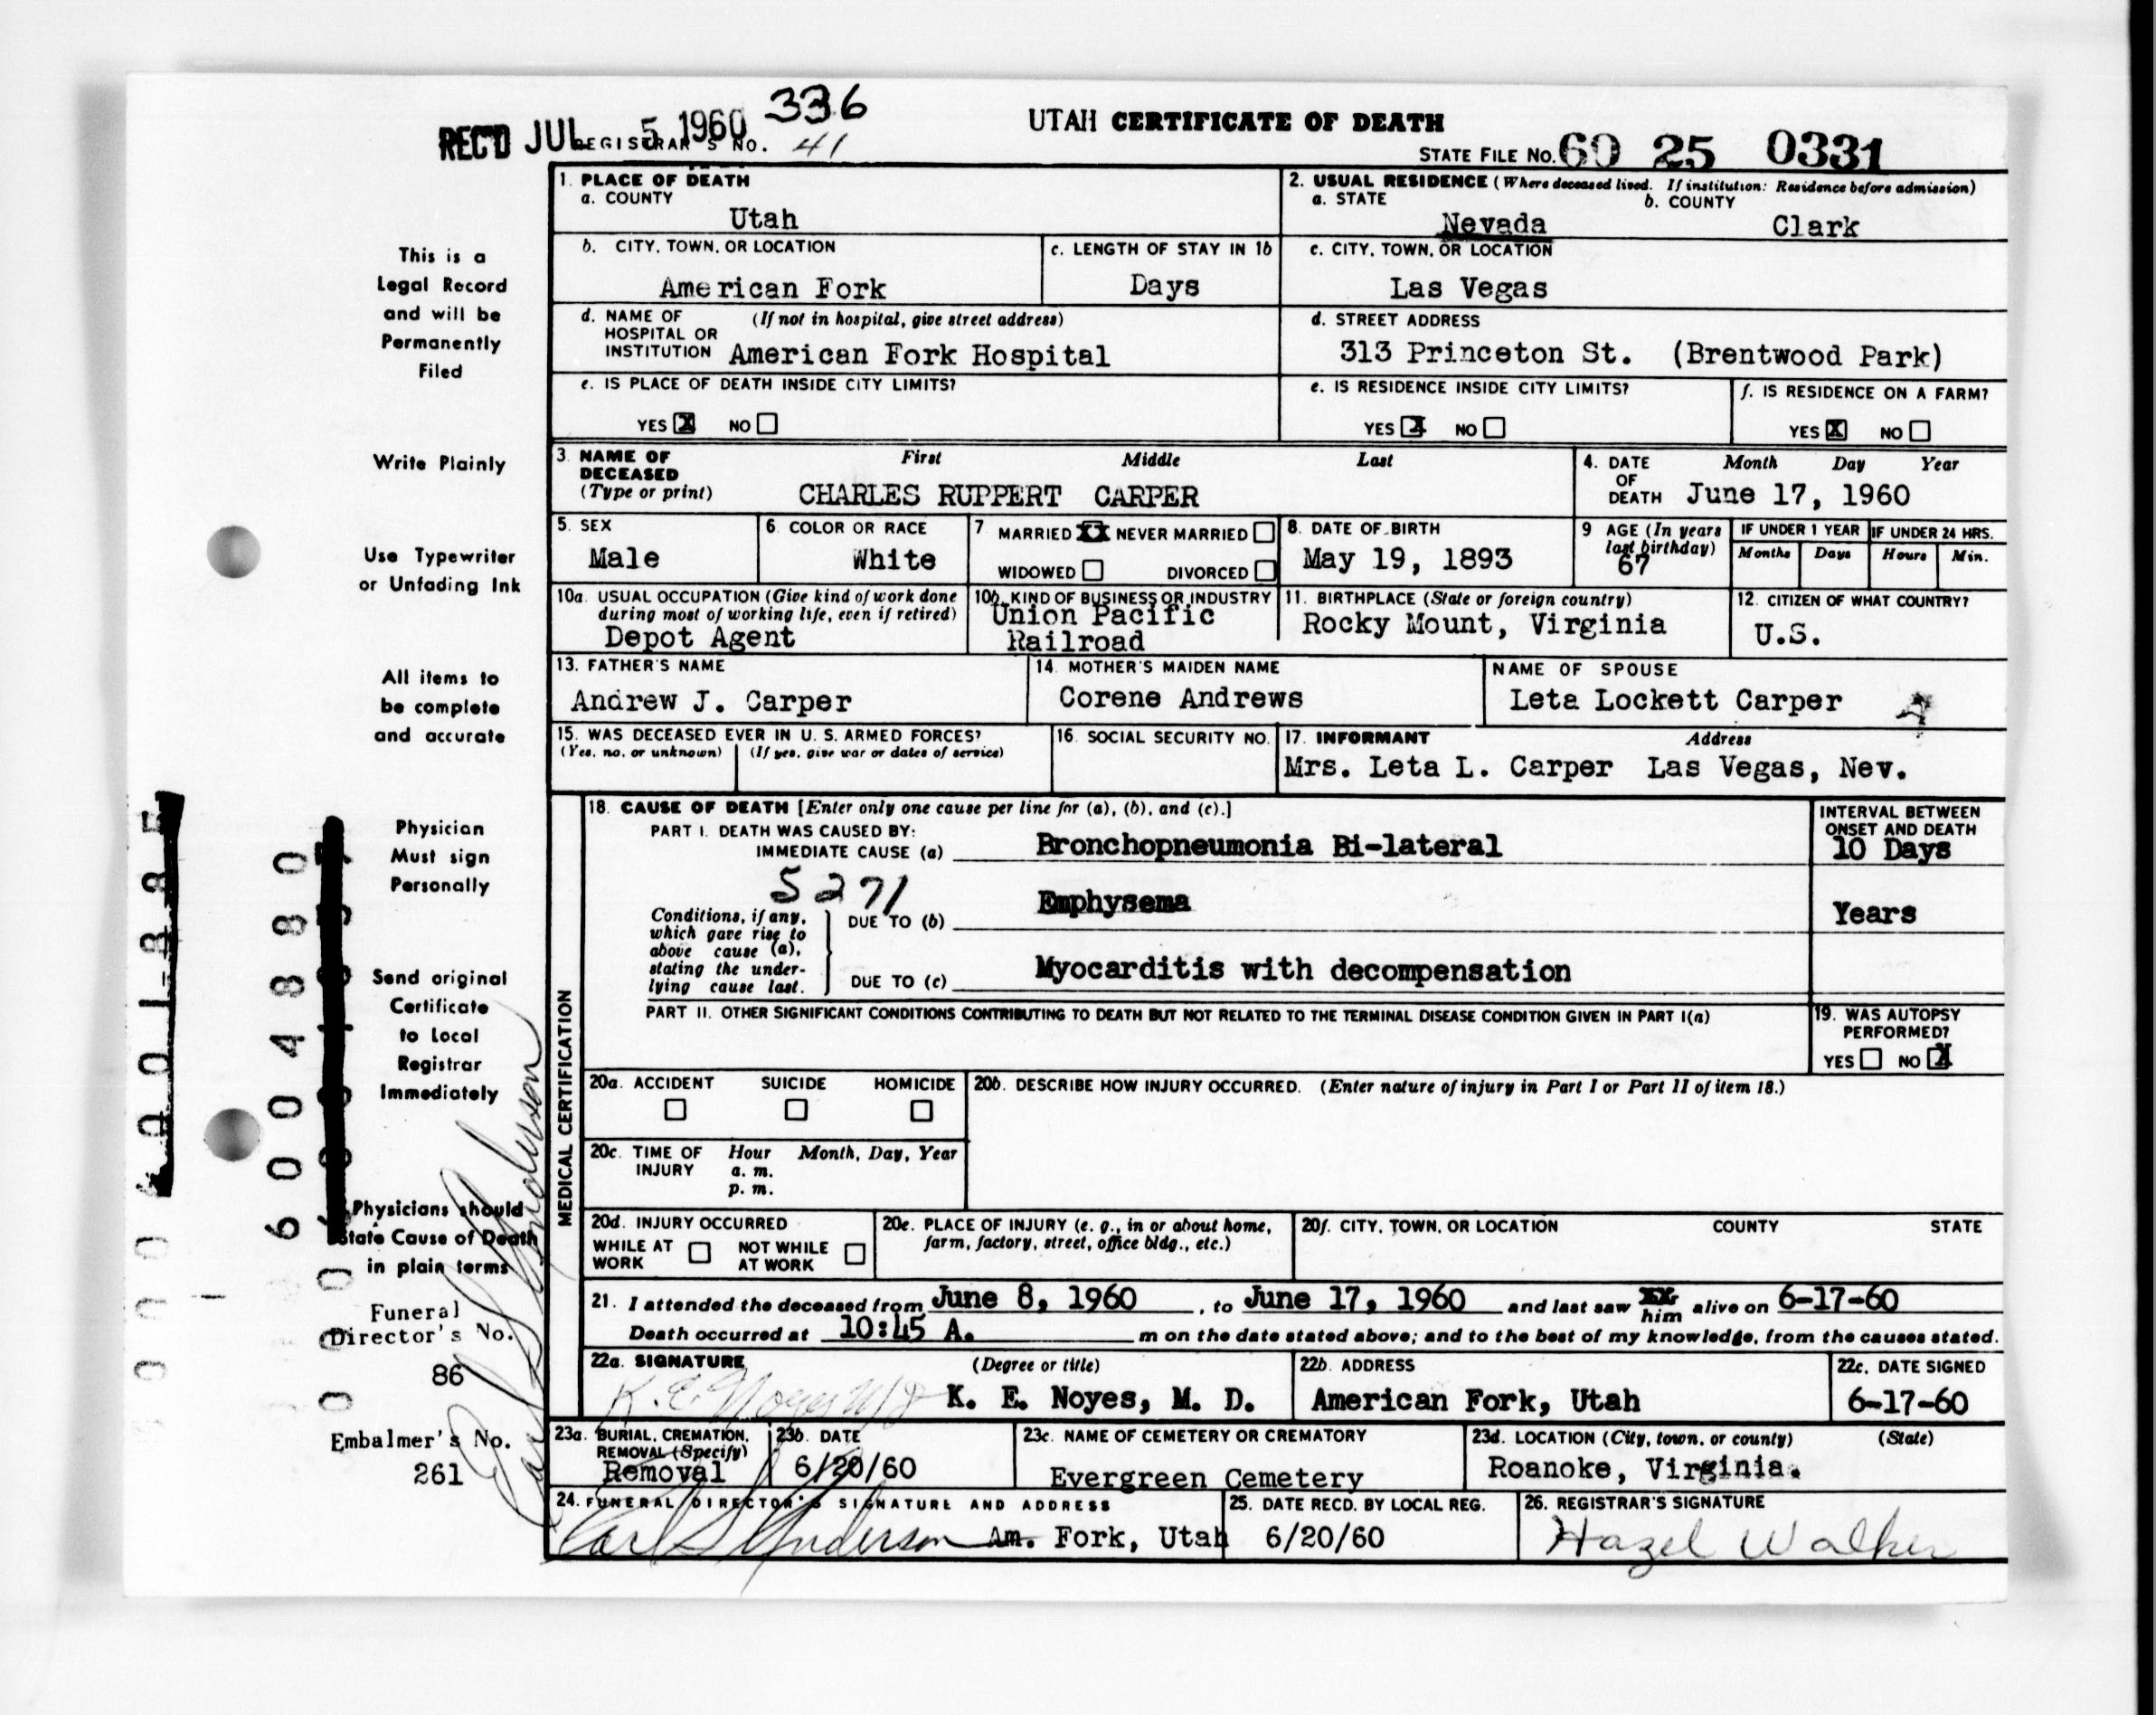 REC'D JUL 5 1960 336
REGISTRAR'S NO. 41
UTAH CERTIFICATE OF DEATH
STATE FILE NO. 60 25 0331
This is a
Legal Record
and will be
Permanently
Filed
Write Plainly
Use Typewriter
or Unfading Ink
All items to
be complete
and accurate
Physician
Must sign
Personally
Send original
Certificate
to Local
Registrar
Immediately
Physicians should
State Cause of Death
in plain terms
Funeral
Director's No.
86
Embalmer's No.
261
6004880
1. PLACE OF DEATH
a. COUNTY
Utah
2. USUAL RESIDENCE (Where deceased lived. If institution: Residence before admission)
a. STATE b. COUNTY
Nevada Clark
b. CITY, TOWN, OR LOCATION
American Fork
c. LENGTH OF STAY IN 1b
Days
c. CITY, TOWN, OR LOCATION
Las Vegas
d. NAME OF (If not in hospital, give street address)
HOSPITAL OR
INSTITUTION American Fork Hospital
d. STREET ADDRESS
313 Princeton St. (Brentwood Park)
e. IS PLACE OF DEATH INSIDE CITY LIMITS?
YES X NO
e. IS RESIDENCE INSIDE CITY LIMITS?
YES X NO
f. IS RESIDENCE ON A FARM?
YES X NO
3. NAME OF First Middle Last
DECEASED
(Type or print) CHARLES RUPPERT CARPER
4. DATE Month Day Year
OF
DEATH June 17, 1960
5. SEX
Male
6. COLOR OR RACE
White
7 MARRIED XX NEVER MARRIED
WIDOWED DIVORCED
8. DATE OF BIRTH
May 19, 1893
9 AGE (In years
last birthday)
67
IF UNDER 1 YEAR IF UNDER 24 HRS.
Months Days Hours Min.
10a. USUAL OCCUPATION (Give kind of work done
during most of working life, even if retired)
Depot Agent
10b. KIND OF BUSINESS OR INDUSTRY
Union Pacific
Railroad
11. BIRTHPLACE (State or foreign country)
Rocky Mount, Virginia
12. CITIZEN OF WHAT COUNTRY?
U.S.
13. FATHER'S NAME
Andrew J. Carper
14. MOTHER'S MAIDEN NAME
Corene Andrews
NAME OF SPOUSE
Leta Lockett Carper
15. WAS DECEASED EVER IN U. S. ARMED FORCES?
(Yes, no, or unknown) (If yes, give war or dates of service)
16. SOCIAL SECURITY NO.
17. INFORMANT Address
Mrs. Leta L. Carper Las Vegas, Nev.
MEDICAL CERTIFICATION
18. CAUSE OF DEATH [Enter only one cause per line for (a), (b), and (c).]
PART I. DEATH WAS CAUSED BY:
IMMEDIATE CAUSE (a) Bronchopneumonia Bi-lateral
INTERVAL BETWEEN
ONSET AND DEATH
10 Days
5271
Conditions, if any,
which gave rise to
above cause (a),
stating the under-
lying cause last.
DUE TO (b) Emphysema
Years
DUE TO (c) Myocarditis with decompensation
PART II. OTHER SIGNIFICANT CONDITIONS CONTRIBUTING TO DEATH BUT NOT RELATED TO THE TERMINAL DISEASE CONDITION GIVEN IN PART I(a)
19. WAS AUTOPSY
PERFORMED?
YES NO X
20a. ACCIDENT SUICIDE HOMICIDE
20b. DESCRIBE HOW INJURY OCCURRED. (Enter nature of injury in Part I or Part II of item 18.)
20c. TIME OF Hour Month, Day, Year
INJURY a. m.
p. m.
20d. INJURY OCCURRED
WHILE AT NOT WHILE
WORK AT WORK
20e. PLACE OF INJURY (e. g., in or about home,
farm, factory, street, office bldg., etc.)
20f. CITY, TOWN, OR LOCATION COUNTY STATE
21. I attended the deceased from June 8, 1960, to June 17, 1960 and last saw him alive on 6-17-60
Death occurred at 10:45 A. m on the date stated above; and to the best of my knowledge, from the causes stated.
22a. SIGNATURE (Degree or title)
K. E. Noyes M D K. E. Noyes, M. D.
22b. ADDRESS
American Fork, Utah
22c. DATE SIGNED
6-17-60
23a. BURIAL, CREMATION,
REMOVAL (Specify)
Removal
23b. DATE
6/20/60
23c. NAME OF CEMETERY OR CREMATORY
Evergreen Cemetery
23d. LOCATION (City, town, or county) (State)
Roanoke, Virginia.
24. FUNERAL DIRECTOR'S SIGNATURE AND ADDRESS
Carl S Anderson Am. Fork, Utah
25. DATE RECD. BY LOCAL REG.
6/20/60
26. REGISTRAR'S SIGNATURE
Hazel Walker